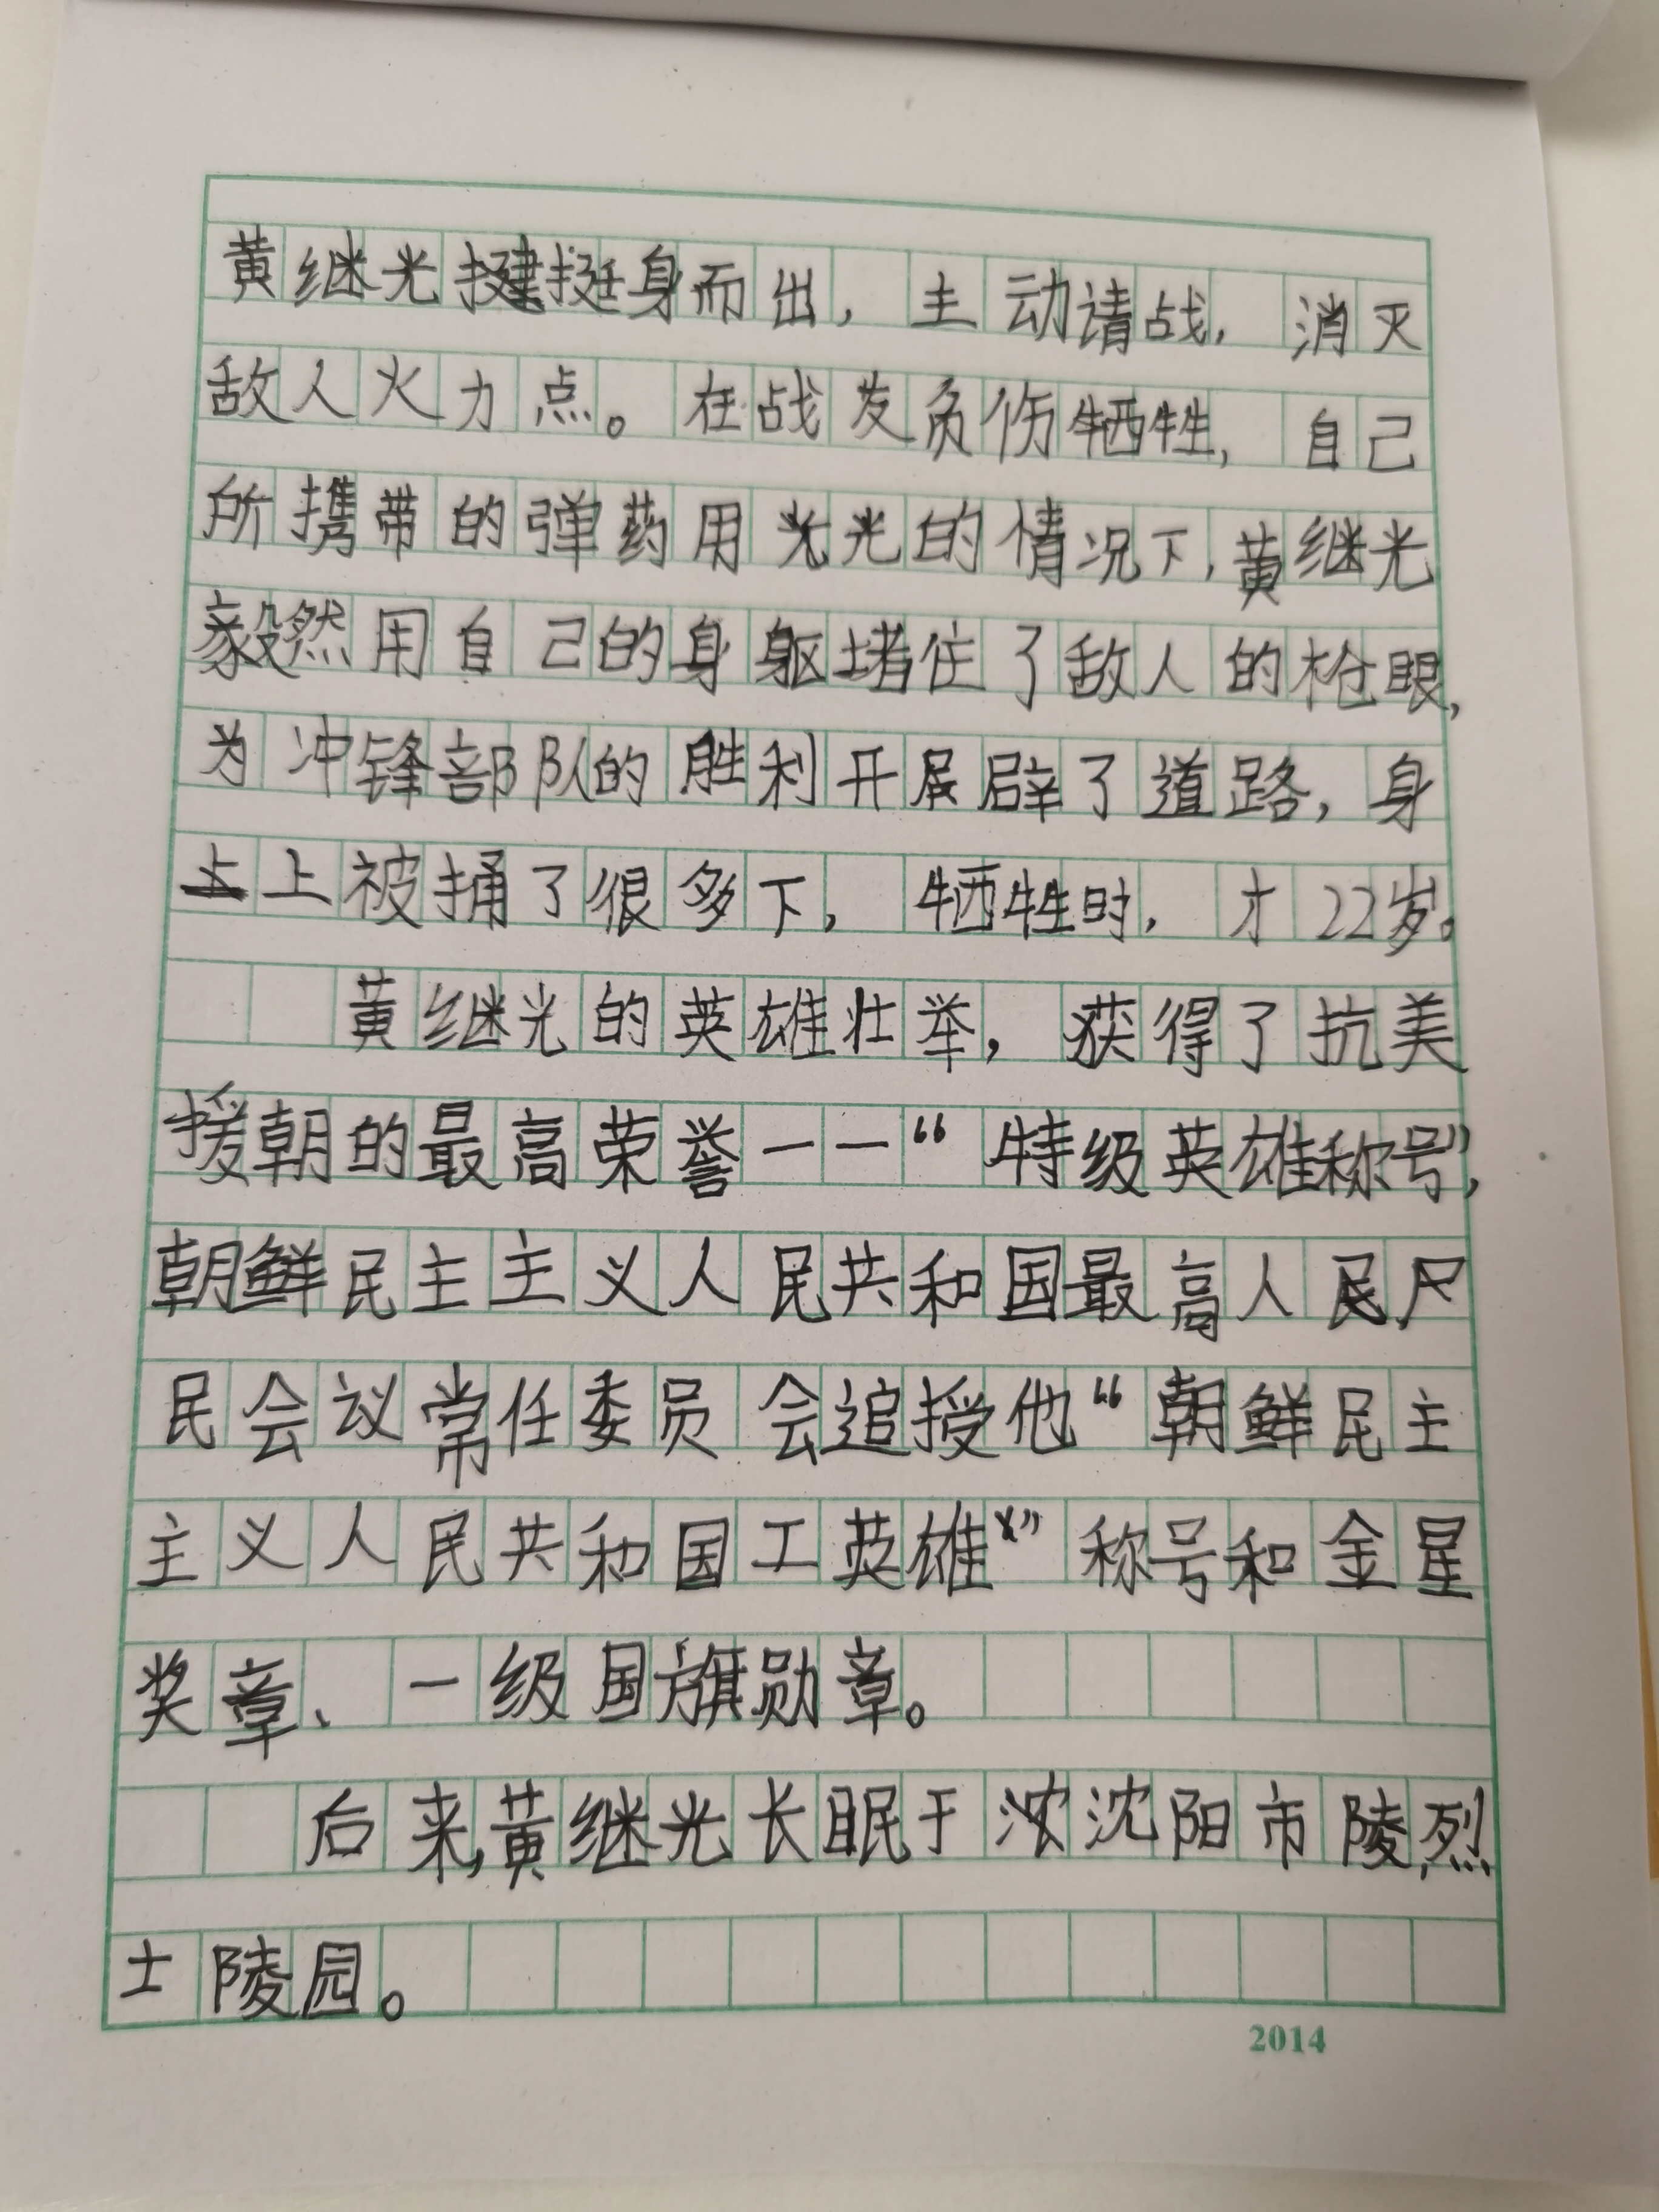 黄继光挺身而出，主动请战，消灭
敌人火力点。在战友负伤牺牲，自己
所携带的弹药用光光的情况下，黄继光
毅然用自己的身躯堵住了敌人的枪眼，
为冲锋部队的胜利开展辟了道路，身
上被捅了很多下，牺牲时，才22岁。
黄继光的英雄壮举，获得了抗美
援朝的最高荣誉——“特级英雄称号”，
朝鲜民主主义人民共和国最高人民尸
民会议常任委员会追授他“朝鲜民主
主义人民共和国工英雄”称号和金星
奖章、一级国旗勋章。
后来，黄继光长眠于沈阳市陵烈
士陵园。
2014